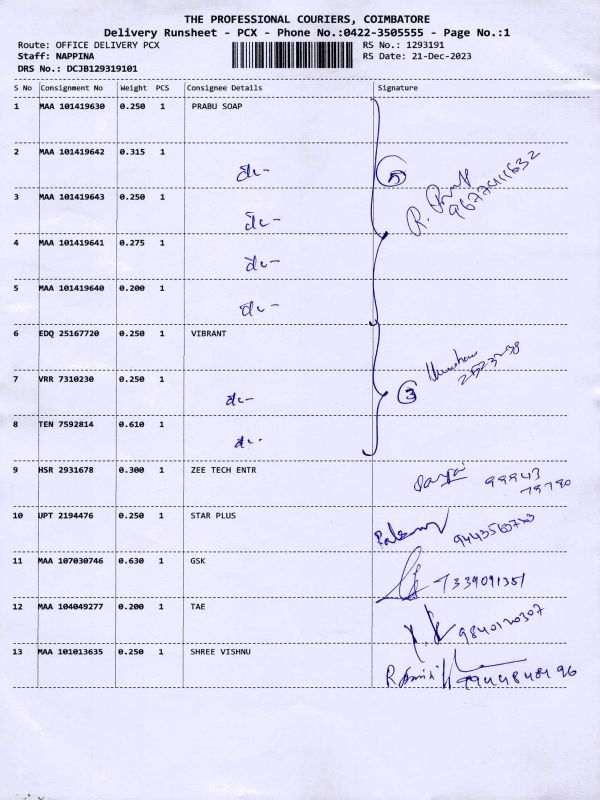 THE PROFESSIONAL COURIERS, COIMBATORE
Delivery Runsheet - PCX - Phone No.:0422-3505555 - Page No.:1
Route: OFFICE DELIVERY PCX RS No.: 1293191
Staff: NAPPINA RS Date: 21-Dec-2023
DRS No.: DCJB129319101
S No Consignment No Weight PCS Consignee Details Signature
1 MAA 101419630 0.250 1 PRABU SOAP
2 MAA 101419642 0.315 1
5
9677411632
3 MAA 101419643 0.250 1
4 MAA 101419641 0.275 1
5 MAA 101419640 0.200 1
6 EDQ 25167720 0.250 1 VIBRANT
7 VRR 7310230 0.250 1
3
8 TEN 7592814 0.610 1
9 HSR 2931678 0.300 1 ZEE TECH ENTR 99943
79790
10 UPT 2194476 0.250 1 STAR PLUS
11 MAA 107030746 0.630 1 GSK 7339091351
12 MAA 104049277 0.200 1 TAE 9840120307
13 MAA 101013635 0.250 1 SHREE VISHNU